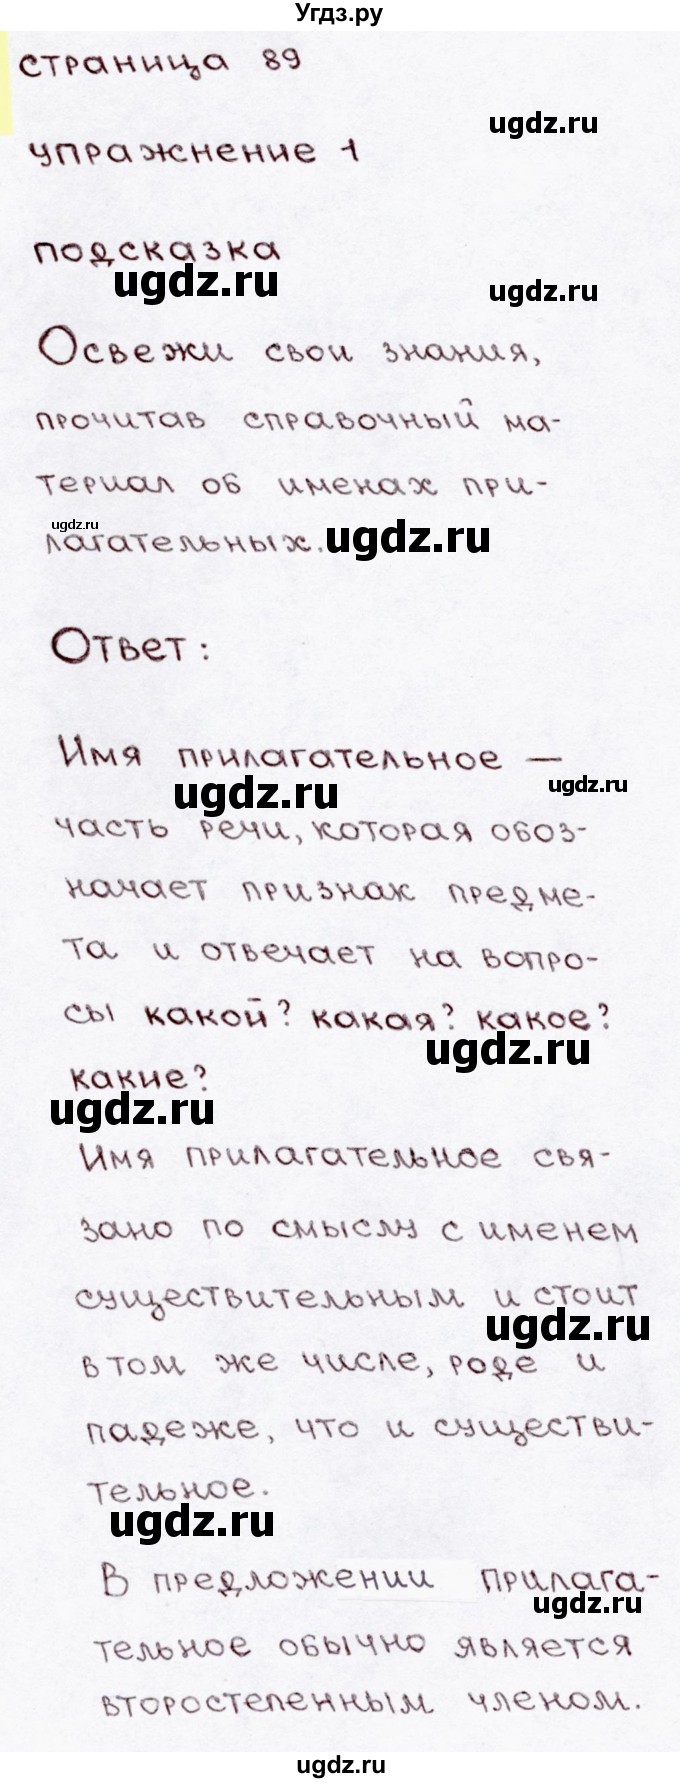 Угдз.ру
страница 89
ugdz.ru
упражнение 1
подсказка
ugdz.ru
ugdz.ru
Освежи свои знания,
прочитав справочный ма-
териал об именах при-
ugdz.ru
лагательных.
ugdz.ru
Ответ:
Имя прилагательное —
ugdz.ru
ugdz.ru
часть речи, которая обоз-
начает признак предме-
та и отвечает на вопро-
сы какой? какая? какое?
ugdz.ru
какие?
ugdz.ru
Имя прилагательное свя-
зано по смыслу с именем
существительным и стоит
ugdz.ru
в том же числе, роде и
падеже, что и существи-
тельное.
ugdz.ru
В предложении прилага-
ugdz.ru
тельное обычно является
второстепенным членом.
ugdz.ru